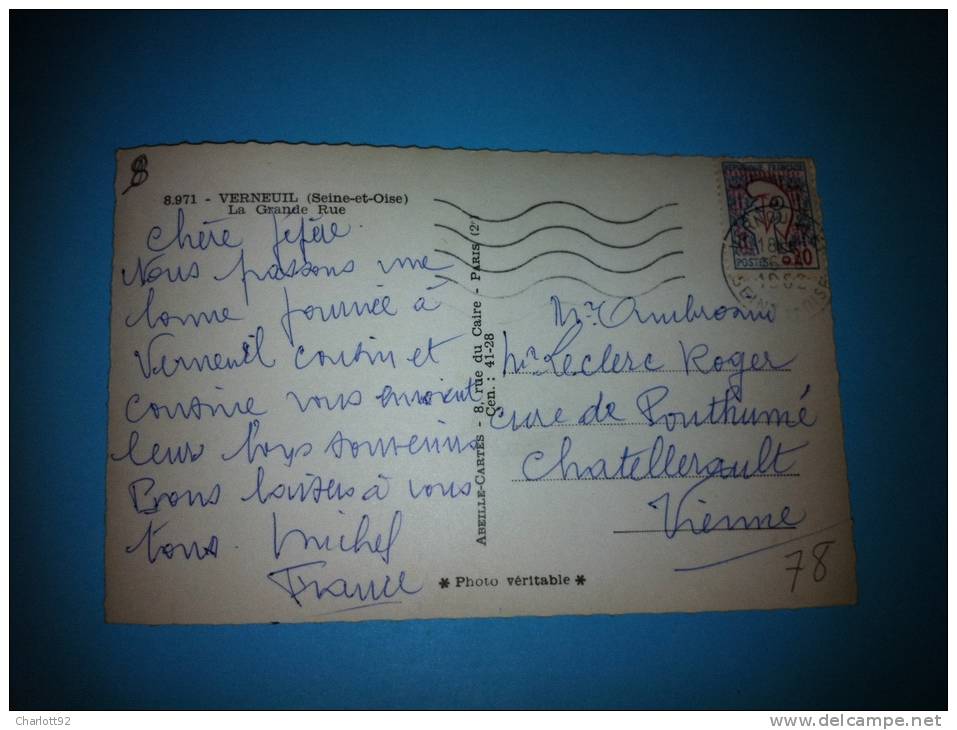 8
8.971 - VERNEUIL (Seine-et-Oise)
La Grande Rue
Chère
Nous passons une
bonne journée à
Verneuil cousin et
cousine vous envoient
leurs bons souvenirs
Bons baisers à vous
tous. Michel
France
ABEILLE-CARTES - 8, rue du Caire - PARIS (2e)
Cen. : 41-28
* Photo véritable *
REPUBLIQUE FRANCAISE
POSTES 0,20
Mr Ambrosini
Mr Leclerc Roger
Cure de Pouthumé
Chatellerault
Vienne
78
Charlott92
www.delcampe.net